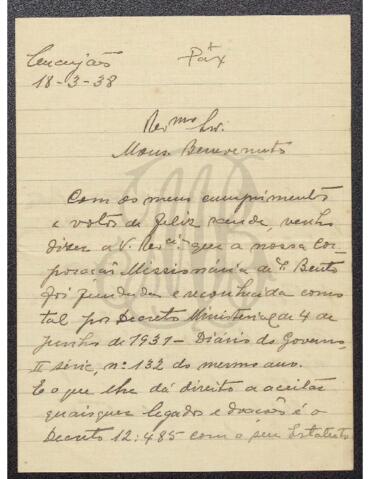 Cucujães
Pax
18-3-38
Revmo Snr.
Mons. Benevenuto
Com os meus cumprimentos
e votos de feliz saude, venho
dizer a V. Revcia que a nossa Cor-
poração Missionária de S. Bento
foi fundada e reconhecida como
tal por Decreto Ministerial de 4 de
junho de 1931 - Diário do Governo,
II série, nº 132 do mesmo ano.
E o que lhe dá direito a aceitar
quaisquer legados e doações é o
Decreto 12:485 com o seu Estatuto